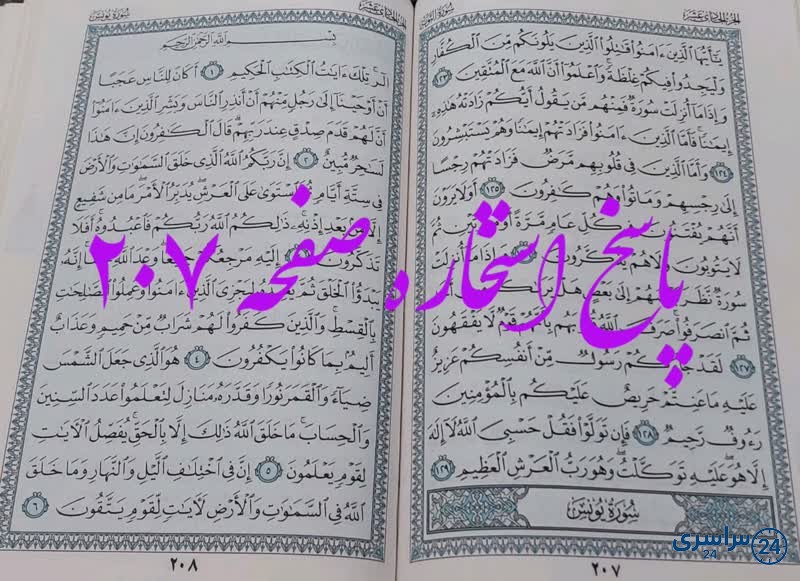 الجزء الحادي عشر
سورة التوبة
يَٰٓأَيُّهَا ٱلَّذِينَ ءَامَنُوا۟ قَٰتِلُوا۟ ٱلَّذِينَ يَلُونَكُم مِّنَ ٱلْكُفَّارِ
وَلْيَجِدُوا۟ فِيكُمْ غِلْظَةً وَٱعْلَمُوٓا۟ أَنَّ ٱللَّهَ مَعَ ٱلْمُتَّقِينَ ١٢٣
وَإِذَا مَآ أُنزِلَتْ سُورَةٌ فَمِنْهُم مَّن يَقُولُ أَيُّكُمْ زَادَتْهُ هَٰذِهِۦٓ
إِيمَٰنًا فَأَمَّا ٱلَّذِينَ ءَامَنُوا۟ فَزَادَتْهُمْ إِيمَٰنًا وَهُمْ يَسْتَبْشِرُونَ
١٢٤ وَأَمَّا ٱلَّذِينَ فِى قُلُوبِهِم مَّرَضٌ فَزَادَتْهُمْ رِجْسًا
إِلَىٰ رِجْسِهِمْ وَمَاتُوا۟ وَهُمْ كَٰفِرُونَ ١٢٥ أَوَلَا يَرَوْنَ
أَنَّهُمْ يُفْتَنُونَ كُلِّ عَامٍ مَّرَّةً أَوْ مَرَّتَيْنِ ثُمَّ
لَا يَتُوبُونَ وَلَا هُمْ يَذَّكَّرُونَ وَإِذَا مَآ أُنزِلَتْ
سُورَةٌ نَّظَرَ بَعْضُهُمْ إِلَىٰ بَعْضٍ هَلْ يَرَىٰكُم
ثُمَّ ٱنصَرَفُوا۟ صَرَفَ ٱللَّهُ قُلُوبَهُم بِأَنَّهُمْ قَوْمٌ لَّا يَفْقَهُونَ
١٢٧ لَقَدْ جَآءَكُمْ رَسُولٌ مِّنْ أَنفُسِكُمْ عَزِيزٌ
عَلَيْهِ مَا عَنِتُّمْ حَرِيصٌ عَلَيْكُم بِٱلْمُؤْمِنِينَ
رَءُوفٌ رَّحِيمٌ ١٢٨ فَإِن تَوَلَّوْا۟ فَقُلْ حَسْبِىَ ٱللَّهُ لَآ إِلَٰهَ
إِلَّا هُوَ عَلَيْهِ تَوَكَّلْتُ وَهُوَ رَبُّ ٱلْعَرْشِ ٱلْعَظِيمِ ١٢٩
سُورَةُ يُونُسَ
٢٠٧
الجزء الحادي عشر
سورة يونس
بِسْمِ ٱللَّهِ ٱلرَّحْمَٰنِ ٱلرَّحِيمِ
الٓر تِلْكَ ءَايَٰتُ ٱلْكِتَٰبِ ٱلْحَكِيمِ ١ أَكَانَ لِلنَّاسِ عَجَبًا
أَنْ أَوْحَيْنَآ إِلَىٰ رَجُلٍ مِّنْهُمْ أَنْ أَنذِرِ ٱلنَّاسَ وَبَشِّرِ ٱلَّذِينَ ءَامَنُوٓا۟
أَنَّ لَهُمْ قَدَمَ صِدْقٍ عِندَ رَبِّهِمْ قَالَ ٱلْكَٰفِرُونَ إِنَّ هَٰذَا
لَسَٰحِرٌ مُّبِينٌ ٢ إِنَّ رَبَّكُمُ ٱللَّهُ ٱلَّذِى خَلَقَ ٱلسَّمَٰوَٰتِ وَٱلْأَرْضَ
فِى سِتَّةِ أَيَّامٍ ثُمَّ ٱسْتَوَىٰ عَلَى ٱلْعَرْشِ يُدَبِّرُ ٱلْأَمْرَ مَا مِن شَفِيعٍ
إِلَّا مِنۢ بَعْدِ إِذْنِهِۦ ذَٰلِكُمُ ٱللَّهُ رَبُّكُمْ فَٱعْبُدُوهُ أَفَلَا
تَذَكَّرُونَ إِلَيْهِ مَرْجِعُكُمْ جَمِيعًا وَعْدَ ٱللَّهِ إِنَّهُۥ
يَبْدَؤُا۟ ٱلْخَلْقَ ثُمَّ يُعِيدُهُۥ لِيَجْزِىَ ٱلَّذِينَ ءَامَنُوا۟ وَعَمِلُوا۟ ٱلصَّٰلِحَٰتِ
بِٱلْقِسْطِ وَٱلَّذِينَ كَفَرُوا۟ لَهُمْ شَرَابٌ مِّنْ حَمِيمٍ وَعَذَابٌ
أَلِيمٌۢ بِمَا كَانُوا۟ يَكْفُرُونَ ٤ هُوَ ٱلَّذِى جَعَلَ ٱلشَّمْسَ
ضِيَآءً وَٱلْقَمَرَ نُورًا وَقَدَّرَهُۥ مَنَازِلَ لِتَعْلَمُوا۟ عَدَدَ ٱلسِّنِينَ
وَٱلْحِسَابَ مَا خَلَقَ ٱللَّهُ ذَٰلِكَ إِلَّا بِٱلْحَقِّ يُفَصِّلُ ٱلْءَايَٰتِ
لِقَوْمٍ يَعْلَمُونَ ٥ إِنَّ فِى ٱخْتِلَٰفِ ٱلَّيْلِ وَٱلنَّهَارِ وَمَا خَلَقَ
ٱللَّهُ فِى ٱلسَّمَٰوَٰتِ وَٱلْأَرْضِ لَءَايَٰتٍ لِّقَوْمٍ يَتَّقُونَ ٦
٢٠٨
پاسخ استخاره صفحه ۲۰۷
سراسری 24
24